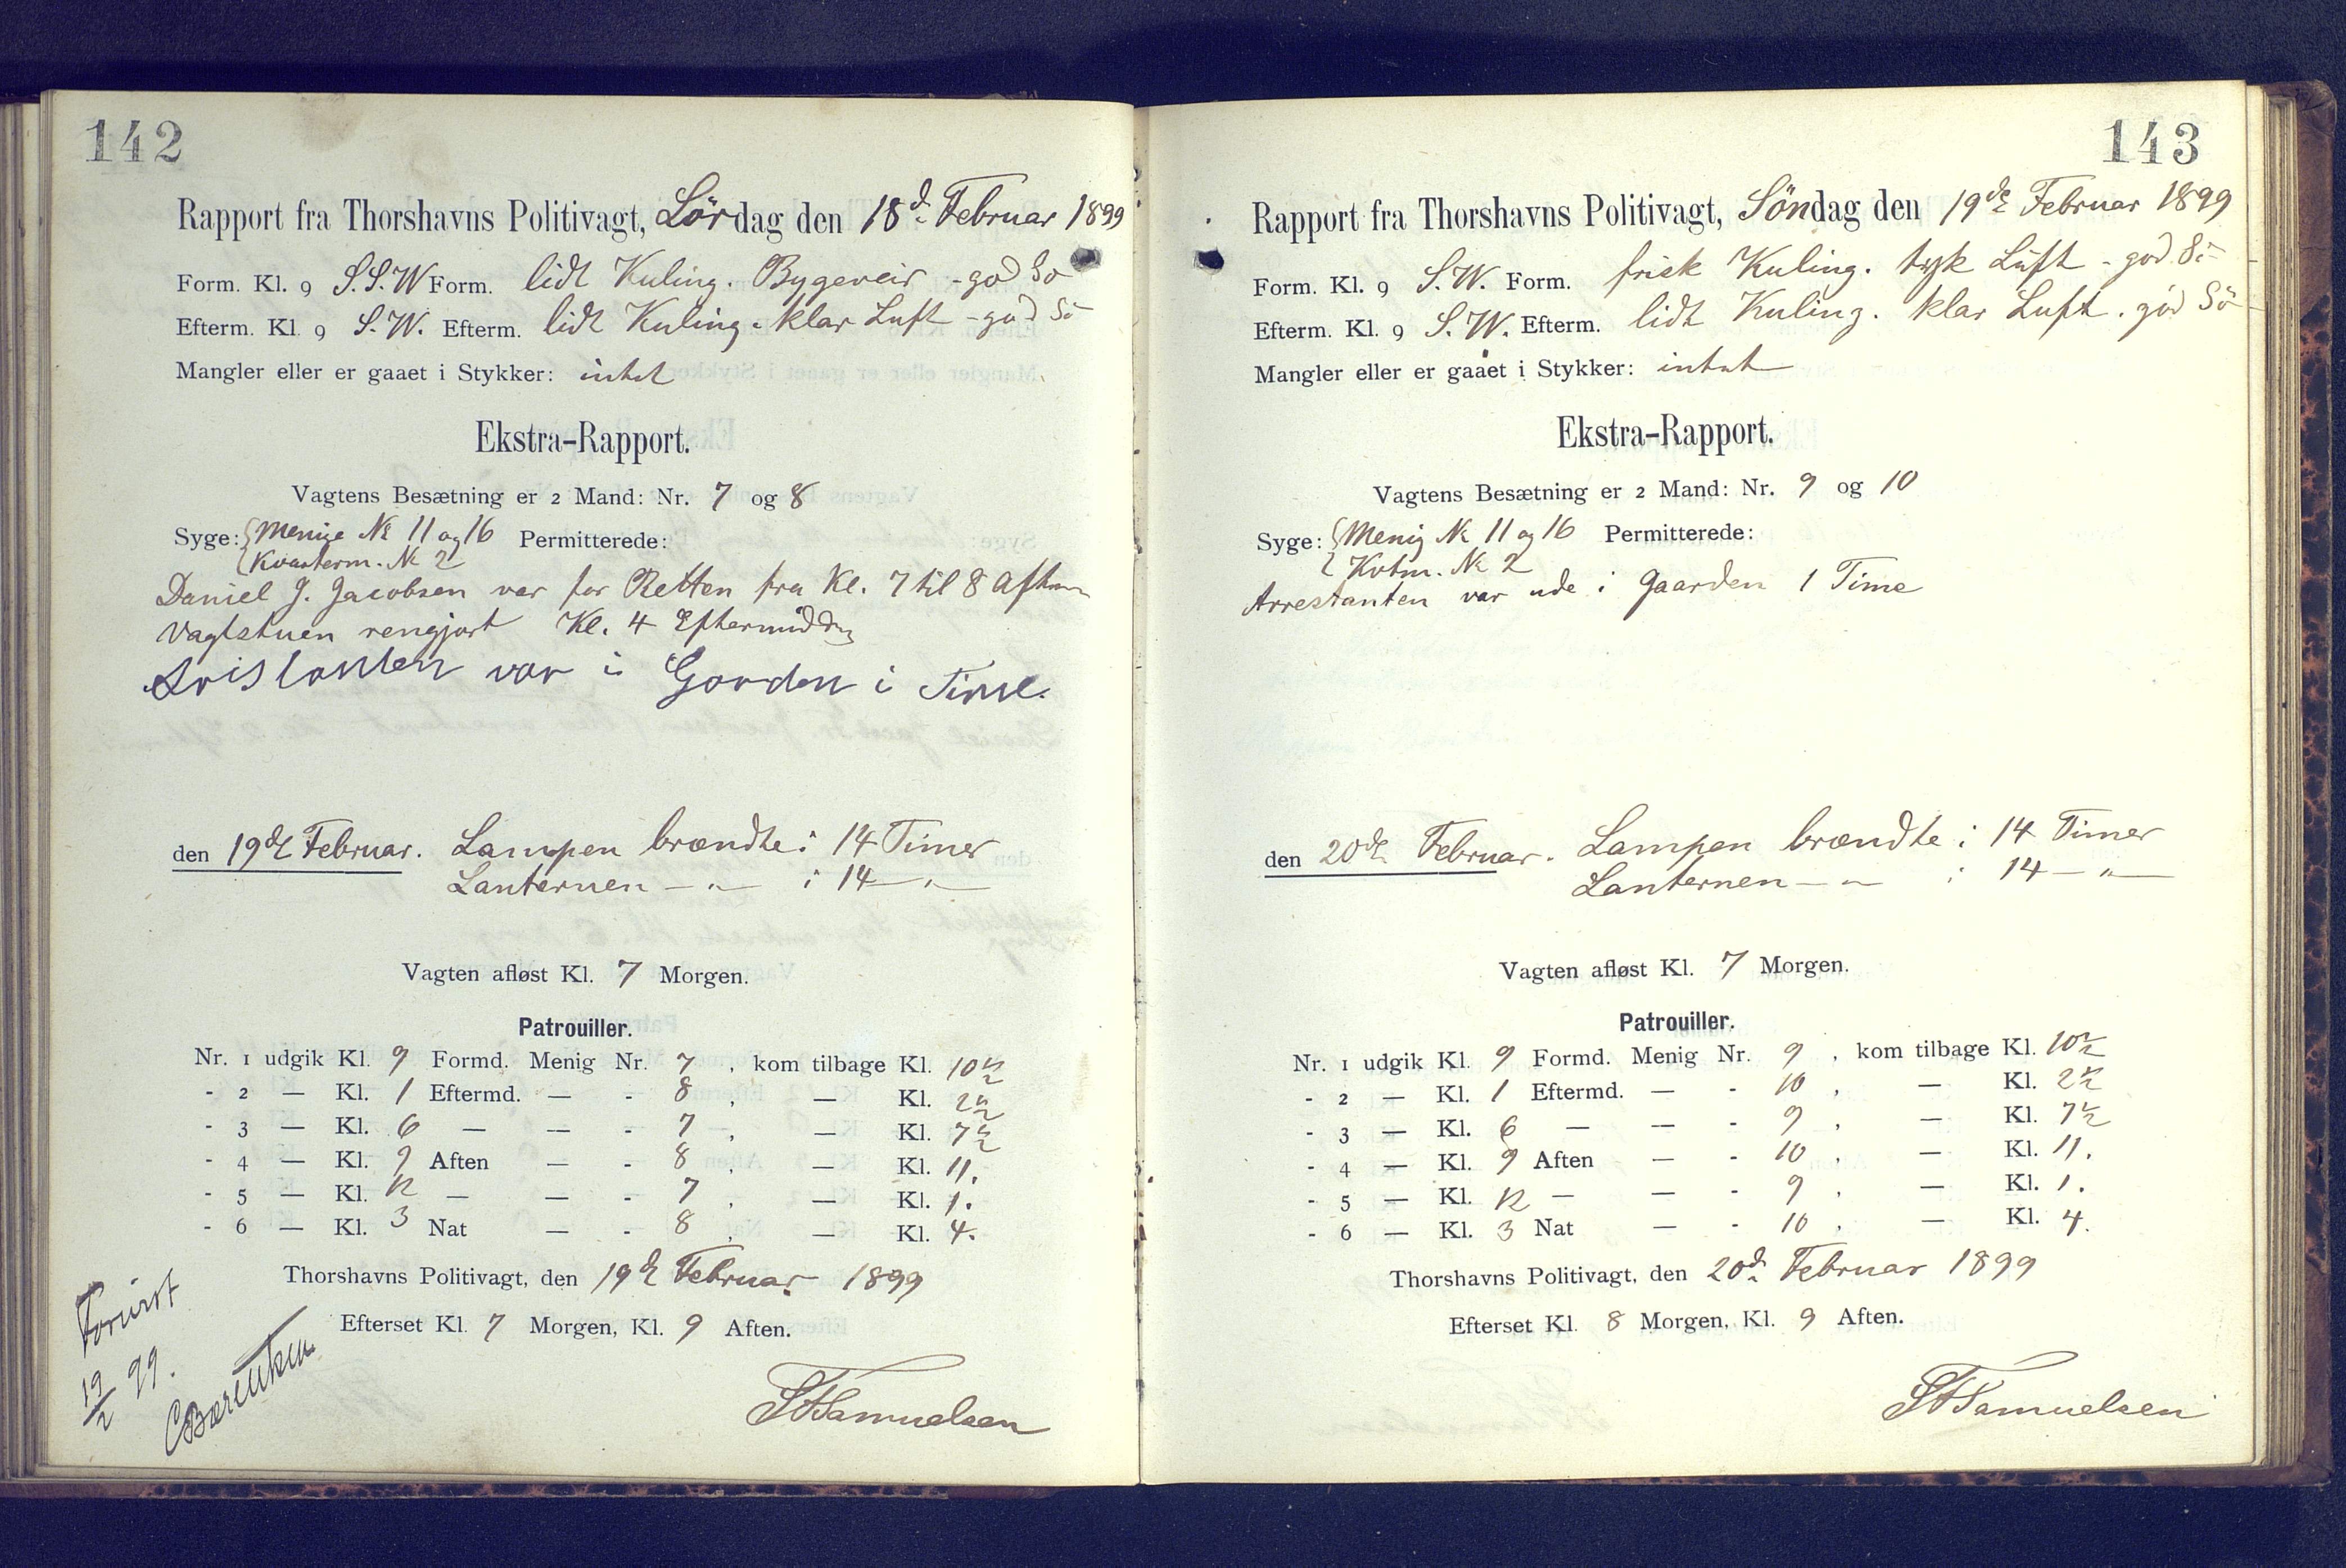 142
Rapport fra Thorshavns Politivagt, Lördag den 18d. Februar 1899
Form. Kl. 9 S.S.W Form. lidt Kuling. Bygeveir - god Sö
Efterm. Kl. 9 S.W. Efterm. lidt Kuling. klar Luft - god Sö
Mangler eller er gaaet i Stykker: intet
Ekstra-Rapport.
Vagtens Besætning er 2 Mand: Nr. 7 og 8
Syge: Menige № 11 og 16 Permitterede:
Kvarterm. № 2
Daniel J. Jacobsen var for Retten fra Kl. 7 til 8 Aften
Vagtstuen rengjort Kl. 4 Eftermiddag
Aristanten var i Gorden i Time.
den 19de Februar. Lampen brændte i 14 Timer
Lanternen — " — i 14 — " —
Vagten afløst Kl. 7 Morgen.
Patrouiller.
Nr. 1 udgik Kl. 9 Formd. Menig Nr. 7, kom tilbage Kl. 10½
- 2 — Kl. 1 Eftermd. — - 8, — Kl. 2½
- 3 — Kl. 6 — — - 7, — Kl. 7½
- 4 — Kl. 9 Aften — - 8, — Kl. 11.
- 5 — Kl. 12 — — - 7, — Kl. 1.
- 6 — Kl. 3 Nat — - 8, — Kl. 4.
Thorshavns Politivagt, den 19de Februar 1899
Efterset Kl. 7 Morgen, Kl. 9 Aften.
Forevist
19/2 99.
CBærentsen
Samuelsen
143
Rapport fra Thorshavns Politivagt, Söndag den 19de Februar 1899
Form. Kl. 9 S.W. Form. frisk Kuling. tyk Luft - god Sö
Efterm. Kl. 9 S.W. Efterm. lidt Kuling. klar Luft. god Sö
Mangler eller er gaaet i Stykker: intet
Ekstra-Rapport.
Vagtens Besætning er 2 Mand: Nr. 9 og 10
Syge: Menig № 11 og 16 Permitterede:
Kvtm. № 2
Arrestanten var ude i Gaarden 1 Time
den 20de Februar. Lampen brændte i 14 Timer
Lanternen — " — i 14 — " —
Vagten afløst Kl. 7 Morgen.
Patrouiller.
Nr. 1 udgik Kl. 9 Formd. Menig Nr. 9, kom tilbage Kl. 10½
- 2 — Kl. 1 Eftermd. — - 10, — Kl. 2½
- 3 — Kl. 6 — — - 9, — Kl. 7½
- 4 — Kl. 9 Aften — - 10, — Kl. 11.
- 5 — Kl. 12 — — - 9, — Kl. 1.
- 6 — Kl. 3 Nat — - 10, — Kl. 4.
Thorshavns Politivagt, den 20d. Februar 1899
Efterset Kl. 8 Morgen, Kl. 9 Aften.
Samuelsen